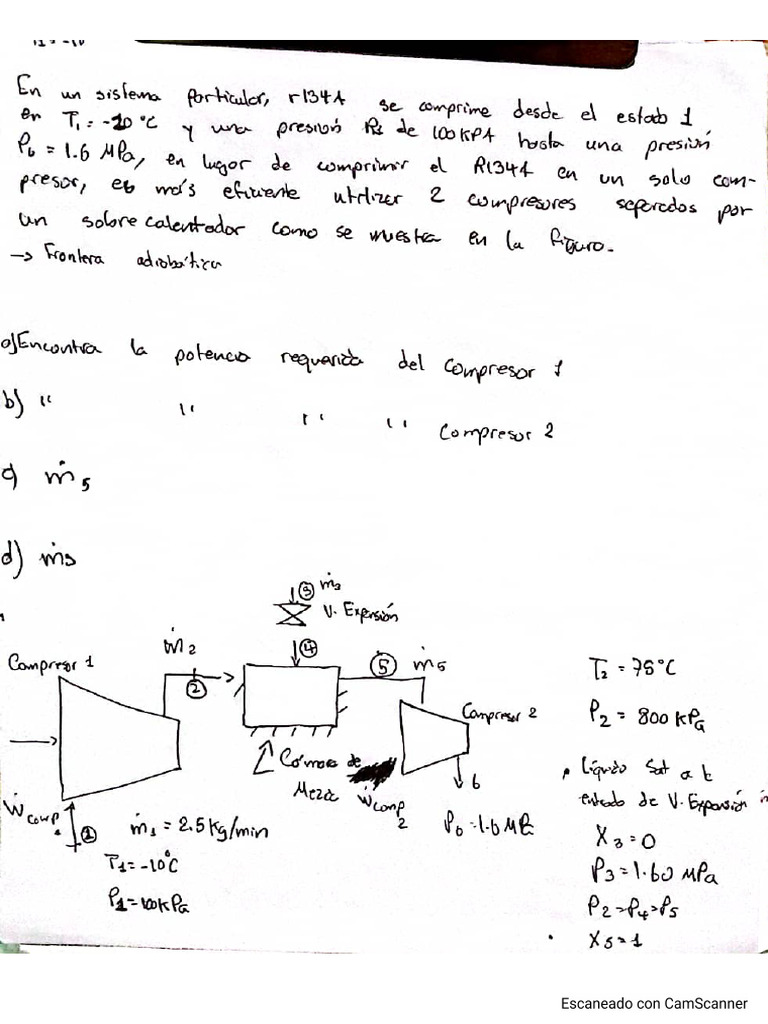 T1 = -10
En un sistema particular, r134A se comprime desde el estado 1
en T1 = -10 °C y una presión P1 de 100 KPA hasta una presión
P6 = 1.6 MPa, en lugar de comprimir el R134A en un solo com-
presor, es más eficiente utilizar 2 compresores separados por
un sobrecalentador como se muestra en la figura.
→ Frontera adiabática
a) Encontra la potencia requerida del compresor 1
b) " " " " Compresor 2
c) ṁ5
d) ṁ3
③ ṁ3
V. Expansión
④
ṁ2
②
⑤ ṁ5
Compresor 1
Compresor 2
T2 = 78°C
P2 = 800 KPa
Cámara de
Mezcla
Ẇcomp
2
6
P6 = 1.6 MPa
Ẇcomp
①
ṁ1 = 2.5 Kg/min
T1 = -10°C
P1 = 100 KPa
Líquido Sat a la
entrada de V. Expansión
X3 = 0
P3 = 1.60 MPa
P2 = P4 = P5
X5 = 1
Escaneado con CamScanner